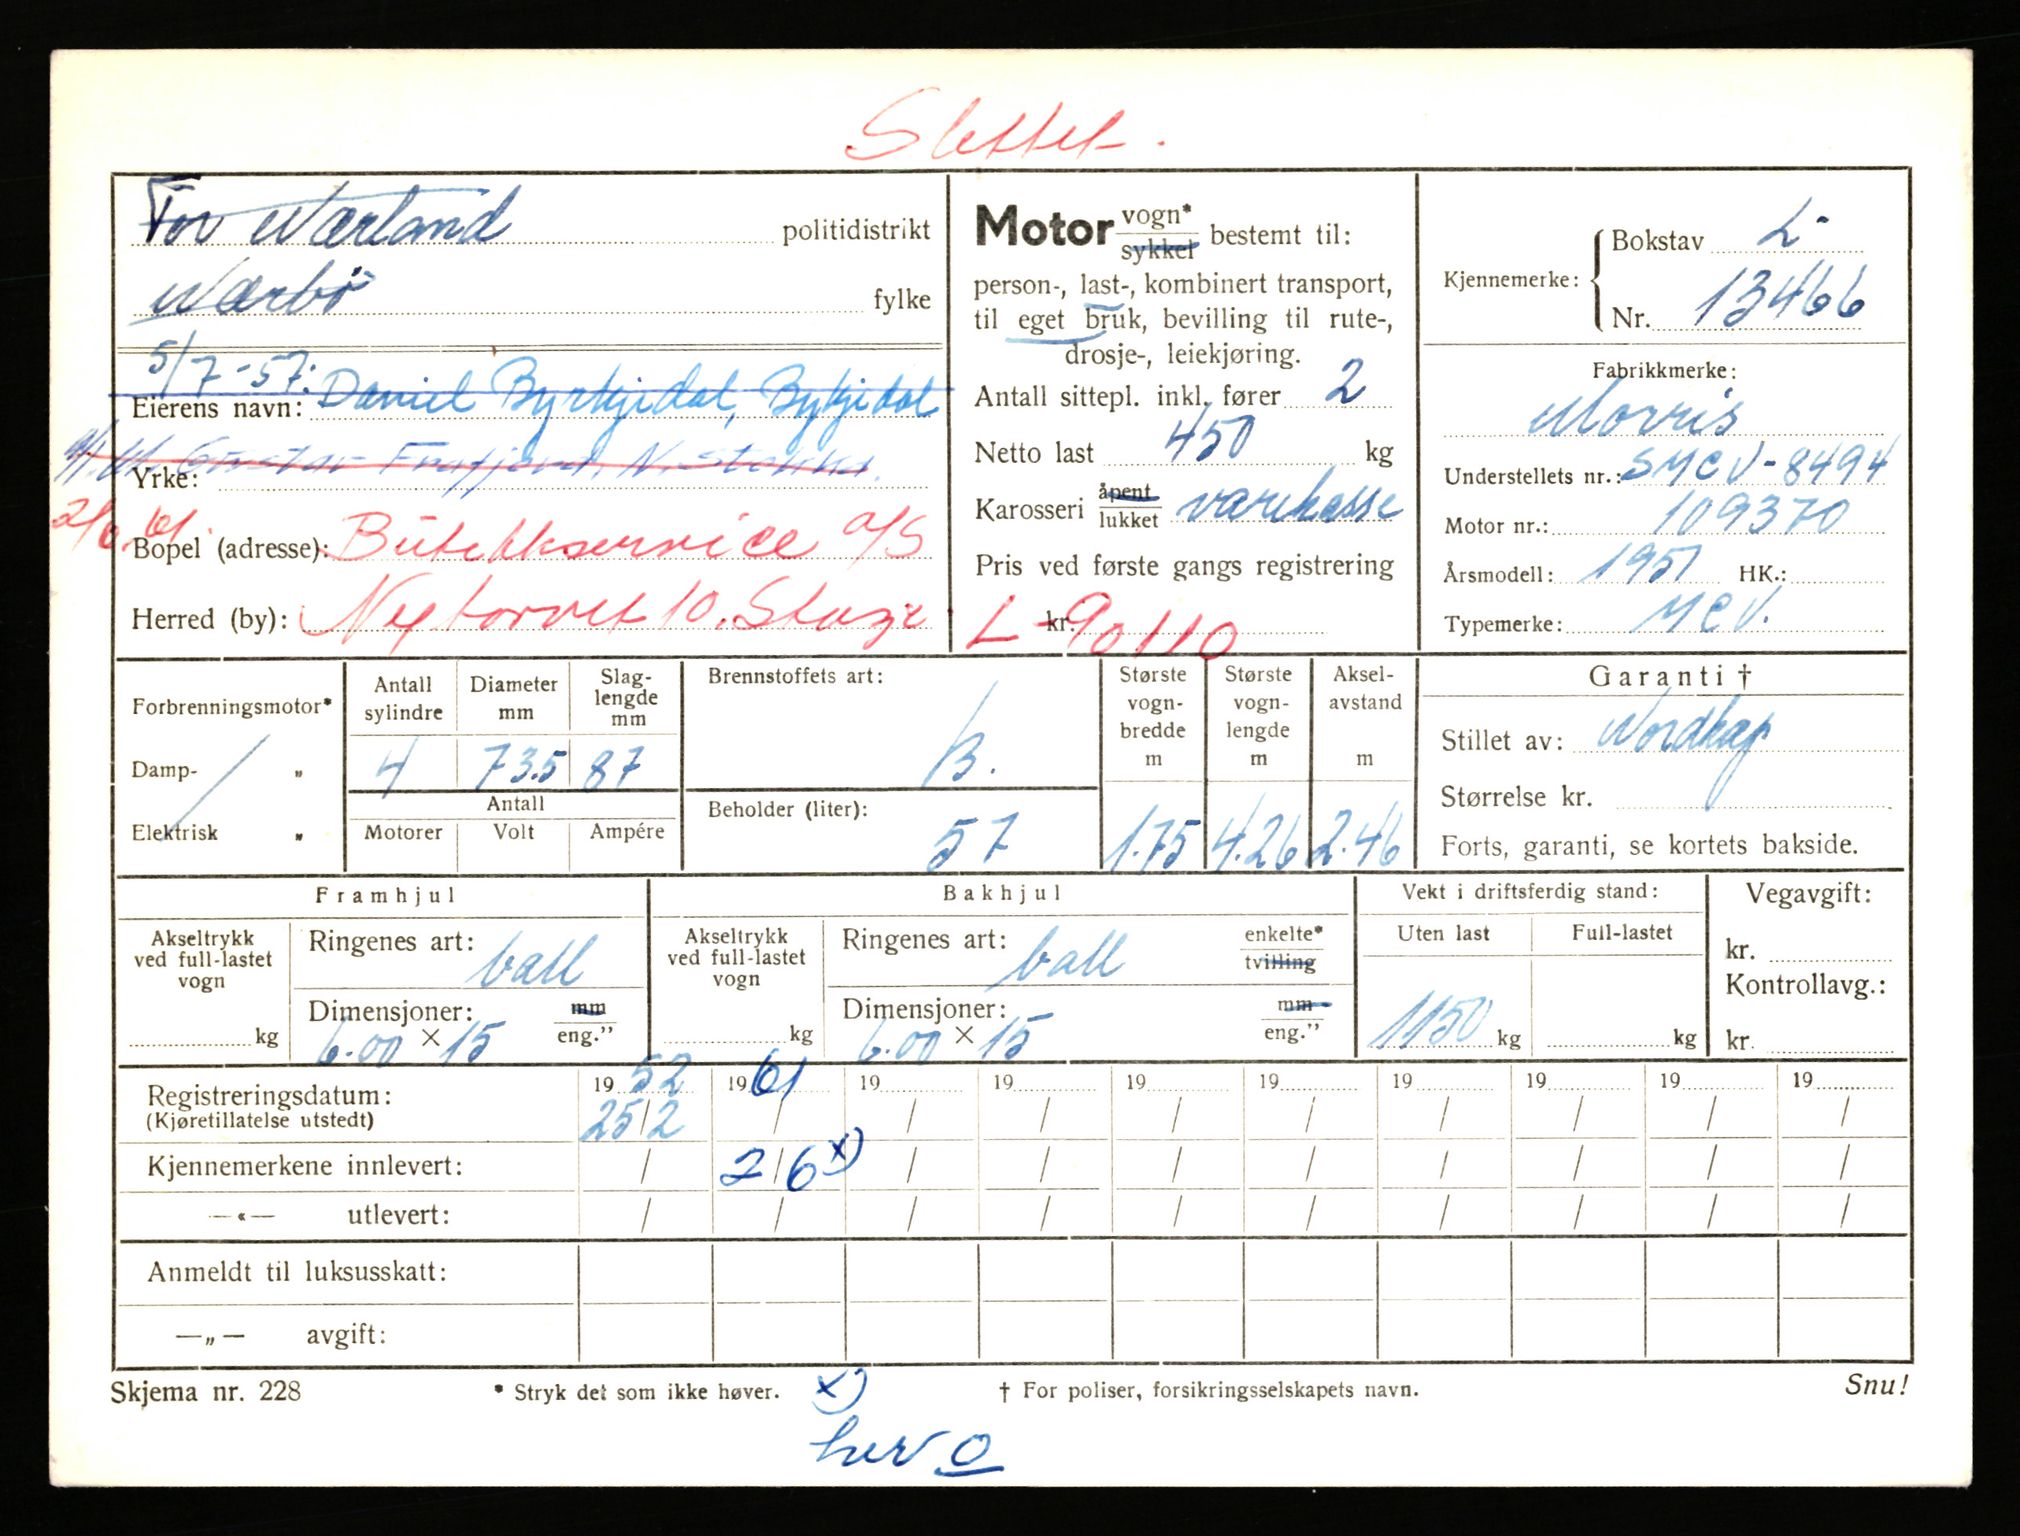 Slettet.
Tor Nærland politidistrikt
Nærbö fylke
5/7-57: Daniel Byrkjedal, Bykjedal
Eierens navn:
Gustav Frafjord, N. Stokka.
Yrke:
2/6.61. Butikkservice a/s
Bopel (adresse):
Herred (by): Nytorvet 10. Stvgr
Motor vogn* sykkel bestemt til:
person-, last-, kombinert transport,
til eget bruk, bevilling til rute-,
drosje-, leiekjøring.
Antall sittepl. inkl. fører 2
Netto last 450 kg
Karosseri åpent lukket varekasse
Pris ved første gangs registrering
kr. L-90110
Kjennemerke: Bokstav L-
Nr. 13466
Fabrikkmerke:
Morris
Understellets nr.: SMCV-8494
Motor nr.: 109370
Årsmodell: 1951 HK.:
Typemerke: MCV.
Forbrenningsmotor*
Damp- „
Elektrisk „
Antall sylindre Diameter mm Slag-lengde mm
4 73.5 87
Antall
Motorer Volt Ampére
Brennstoffets art:
B.
Beholder (liter):
57
Største vogn-bredde m Største vogn-lengde m Aksel-avstand m
1.75 4.26 2.46
Garanti †
Stillet av: Nordkap
Størrelse kr.
Forts, garanti, se kortets bakside.
Framhjul
Akseltrykk ved full-lastet vogn
kg
Ringenes art: ball
Dimensjoner: mm
6.00 × 15 eng.”
Bakhjul
Akseltrykk ved full-lastet vogn
kg
Ringenes art: ball enkelte* tvilling
Dimensjoner: mm
6.00 × 15 eng.”
Vekt i driftsferdig stand:
Uten last Full-lastet
1150 kg kg
Vegavgift:
kr.
Kontrollavg.:
kr.
Registreringsdatum: 19 52 19 61 19 19 19 19 19 19 19 19
(Kjøretillatelse utstedt) 25/2 / / / / / / / / /
Kjennemerkene innlevert: / 2/6 x) / / / / / / / /
—«— utlevert: / / / / / / / / / /
Anmeldt til luksusskatt:
—„— avgift:
Skjema nr. 228 * Stryk det som ikke høver. x) † For poliser, forsikringsselskapets navn. Snu!
her o